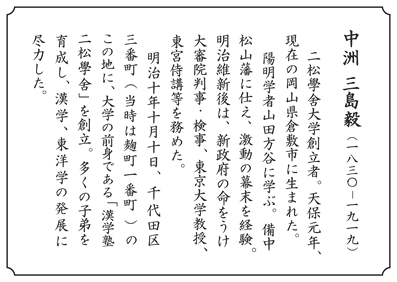 中洲 三島毅（一八三〇－一九一九）
二松學舍大学創立者。天保元年、
現在の岡山県倉敷市に生まれた。
陽明学者山田方谷に学ぶ。備中
松山藩に仕え、激動の幕末を経験。
明治維新後は、新政府の命をうけ
大審院判事・検事、東京大学教授、
東宮侍講等を務めた。
明治十年十月十日、千代田区
三番町（当時は麹町一番町）の
この地に、大学の前身である「漢学塾
二松學舍」を創立。多くの子弟を
育成し、漢学、東洋学の発展に
尽力した。